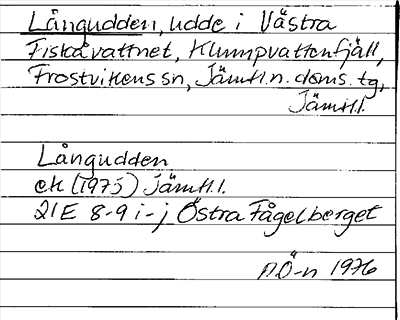 Långudden, udde i Västra
Fiskåvattnet, Klumpvattenfjäll,
Frostvikens sn, Jämtl.n.doms.tg,
Jämtl.
Långudden
ek (1975) Jämtl.
21E 8-9 i-j Östra Fågelberget
AÖ-n 1976